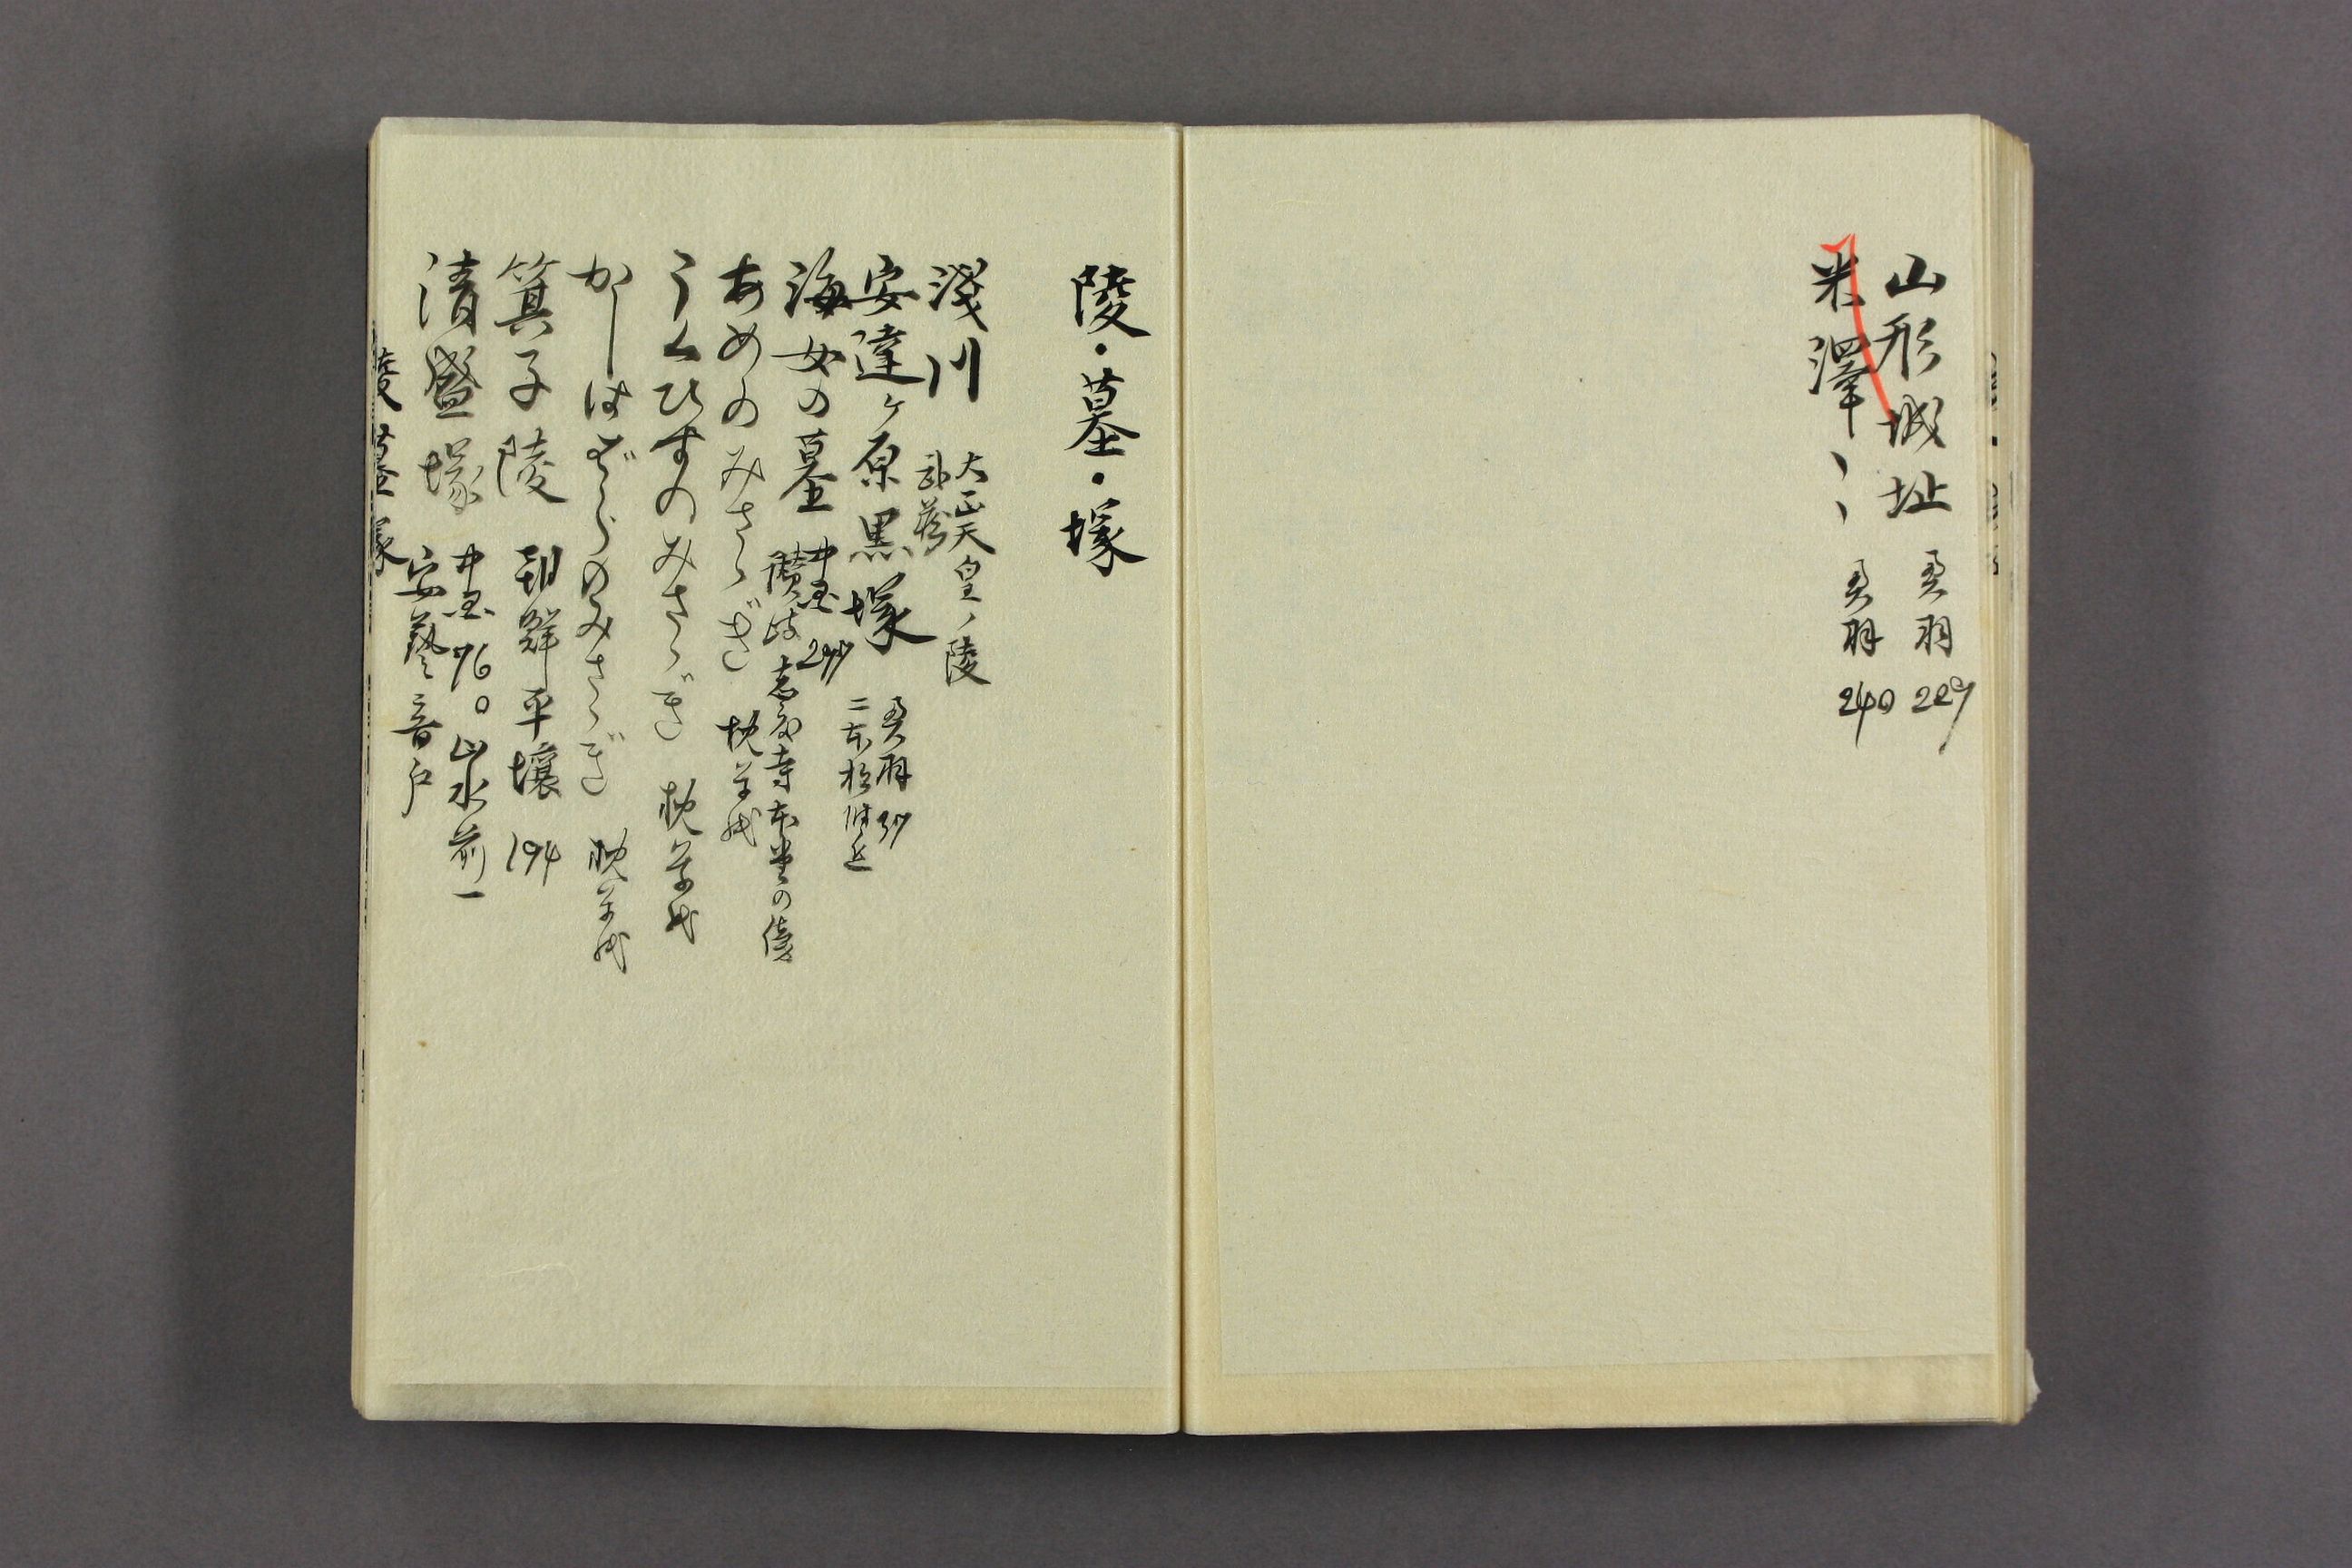 山形城址 奥羽 229
米澤〻〻 奥羽 240
陵・墓・塚
淺川 大正天皇ノ陵
武藏
安達ヶ原黒塚 奥羽 37
二本松附近
海女の墓 中国 297
讃岐志度寺本堂の傍
あめのみさゝぎ 枕草紙
うくひすのみさゝぎ 枕草紙
かしはばらのみさゝぎ 枕草紙
箕子陵 朝鮮平壤 194
清盛塚 中国 76。山水前一
安藝音戸
陵 墓 塚